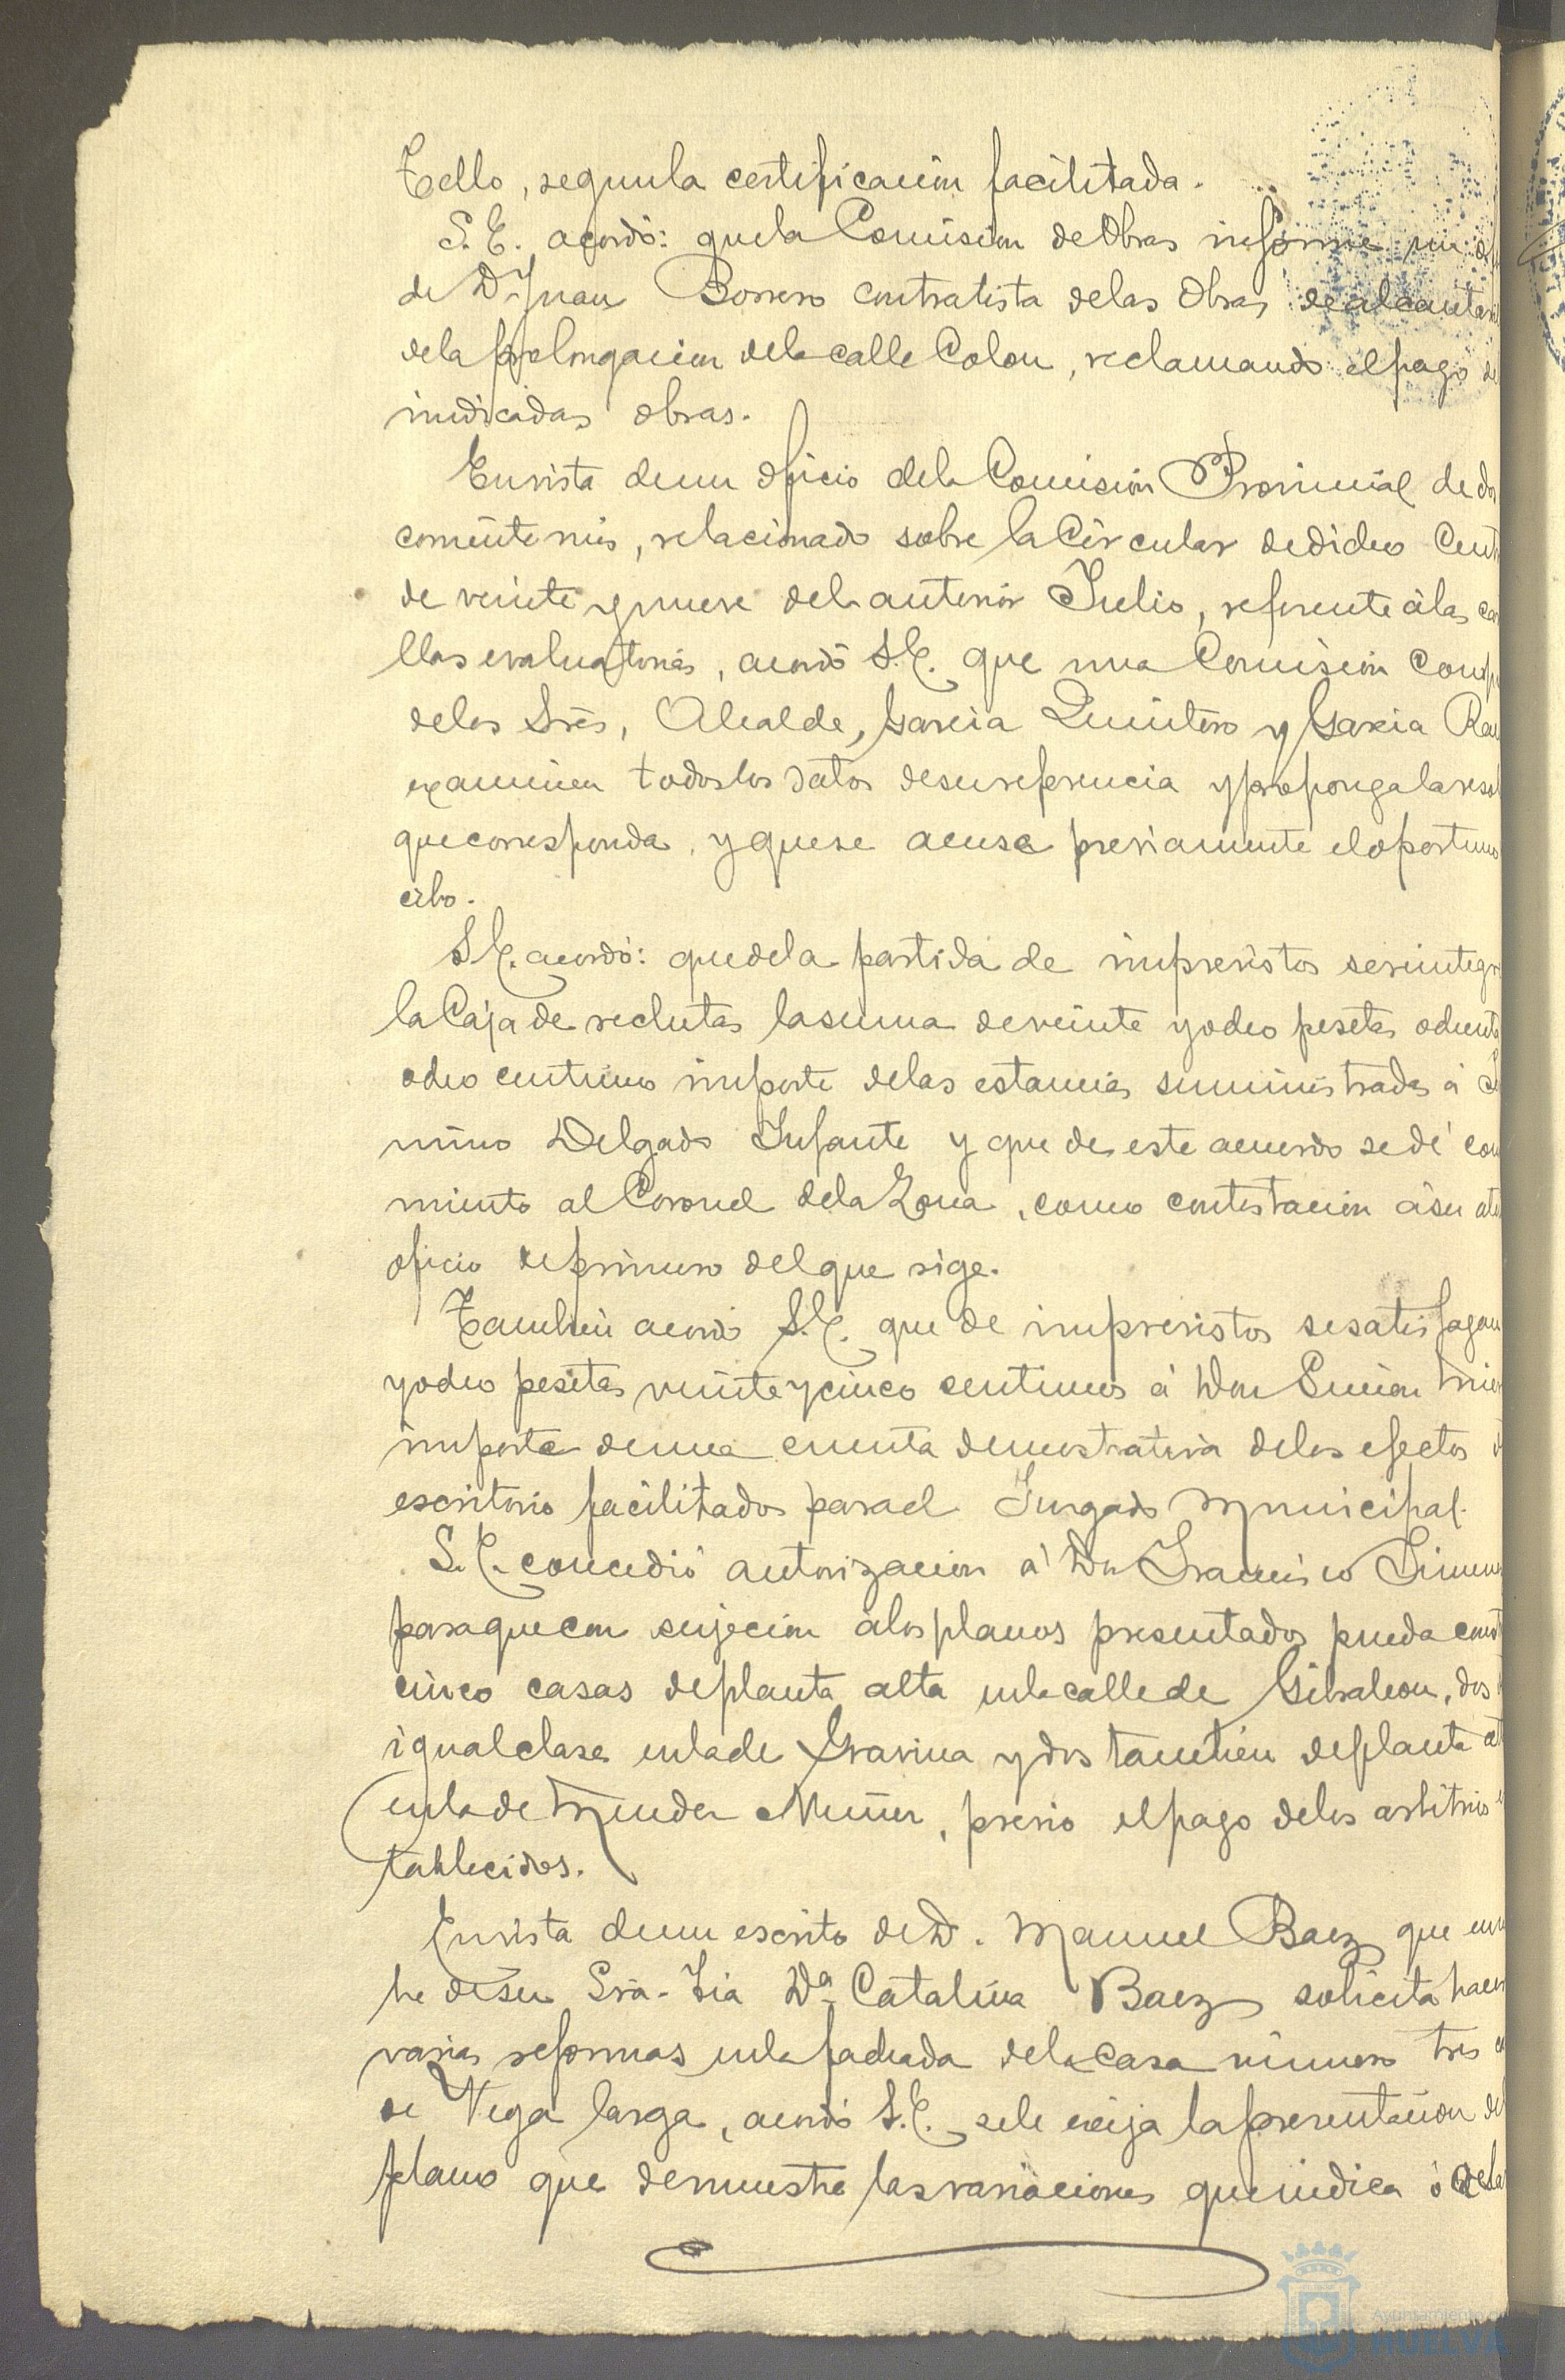 Tello, segun la certificacion facilitada.
S. E. acordó: que la Comision de Obras informe un
de D. Juan Borrero contratista de las Obras de alcantar
de la prolongacion de la calle Colon, reclamando el pago de
indicadas obras.
En vista de un oficio de la Comision Provincial de dos
corriente mes, relacionado sobre la Circular de dicho Cent
de veinte y nueve del anterior Julio, referente á las car
llas evaluatorias, acordó S. E. que una Comision comp
de los Sres, Alcalde, Garcia Quintero y Garcia Ram
examinen todos los datos de su referencia y proponga la resol
que corresponda, y que se acuse previamente el oportuno
cibo.
S. E. acordó: que de la partida de imprevistos se reintegre
la Caja de reclutas la suma de veinte y ocho pesetas ochenta
ocho centimos importe de las estancias suministradas á
nimo Delgado Infante y que de este acuerdo se dé cono
miento al Coronel de la Zona, como contestacion á su at
oficio de primero del que rige.
Tambien acordó S. E. que de imprevistos se satisfagan
y ocho pesetas veinte y cinco centimos á Don Simón
importe de una cuenta demostrativa de los efectos d
escritorio facilitados para el Juzgado Municipal.
S. E. concedió autorizacion á Don Francisco Jimen
para que con sujecion á los planos presentados pueda const
cinco casas de planta alta en la calle de Gibraleon, dos
igual clase en la de Gravina y dos tambien de planta alt
en la de Mendez Nuñez, previo el pago de los arbitrios
tablecidos.
En vista de un escrito de D. Manuel Baez que en n
bre de su Sra. Tia Dª Catalina Baez solicita hacer
varias reformas en la fachada de la casa número tres
de Vega larga, acordó S. E. se le exija la presentacion del
plano que demuestre las variaciones que indica ó
Ayuntamiento
HUELVA